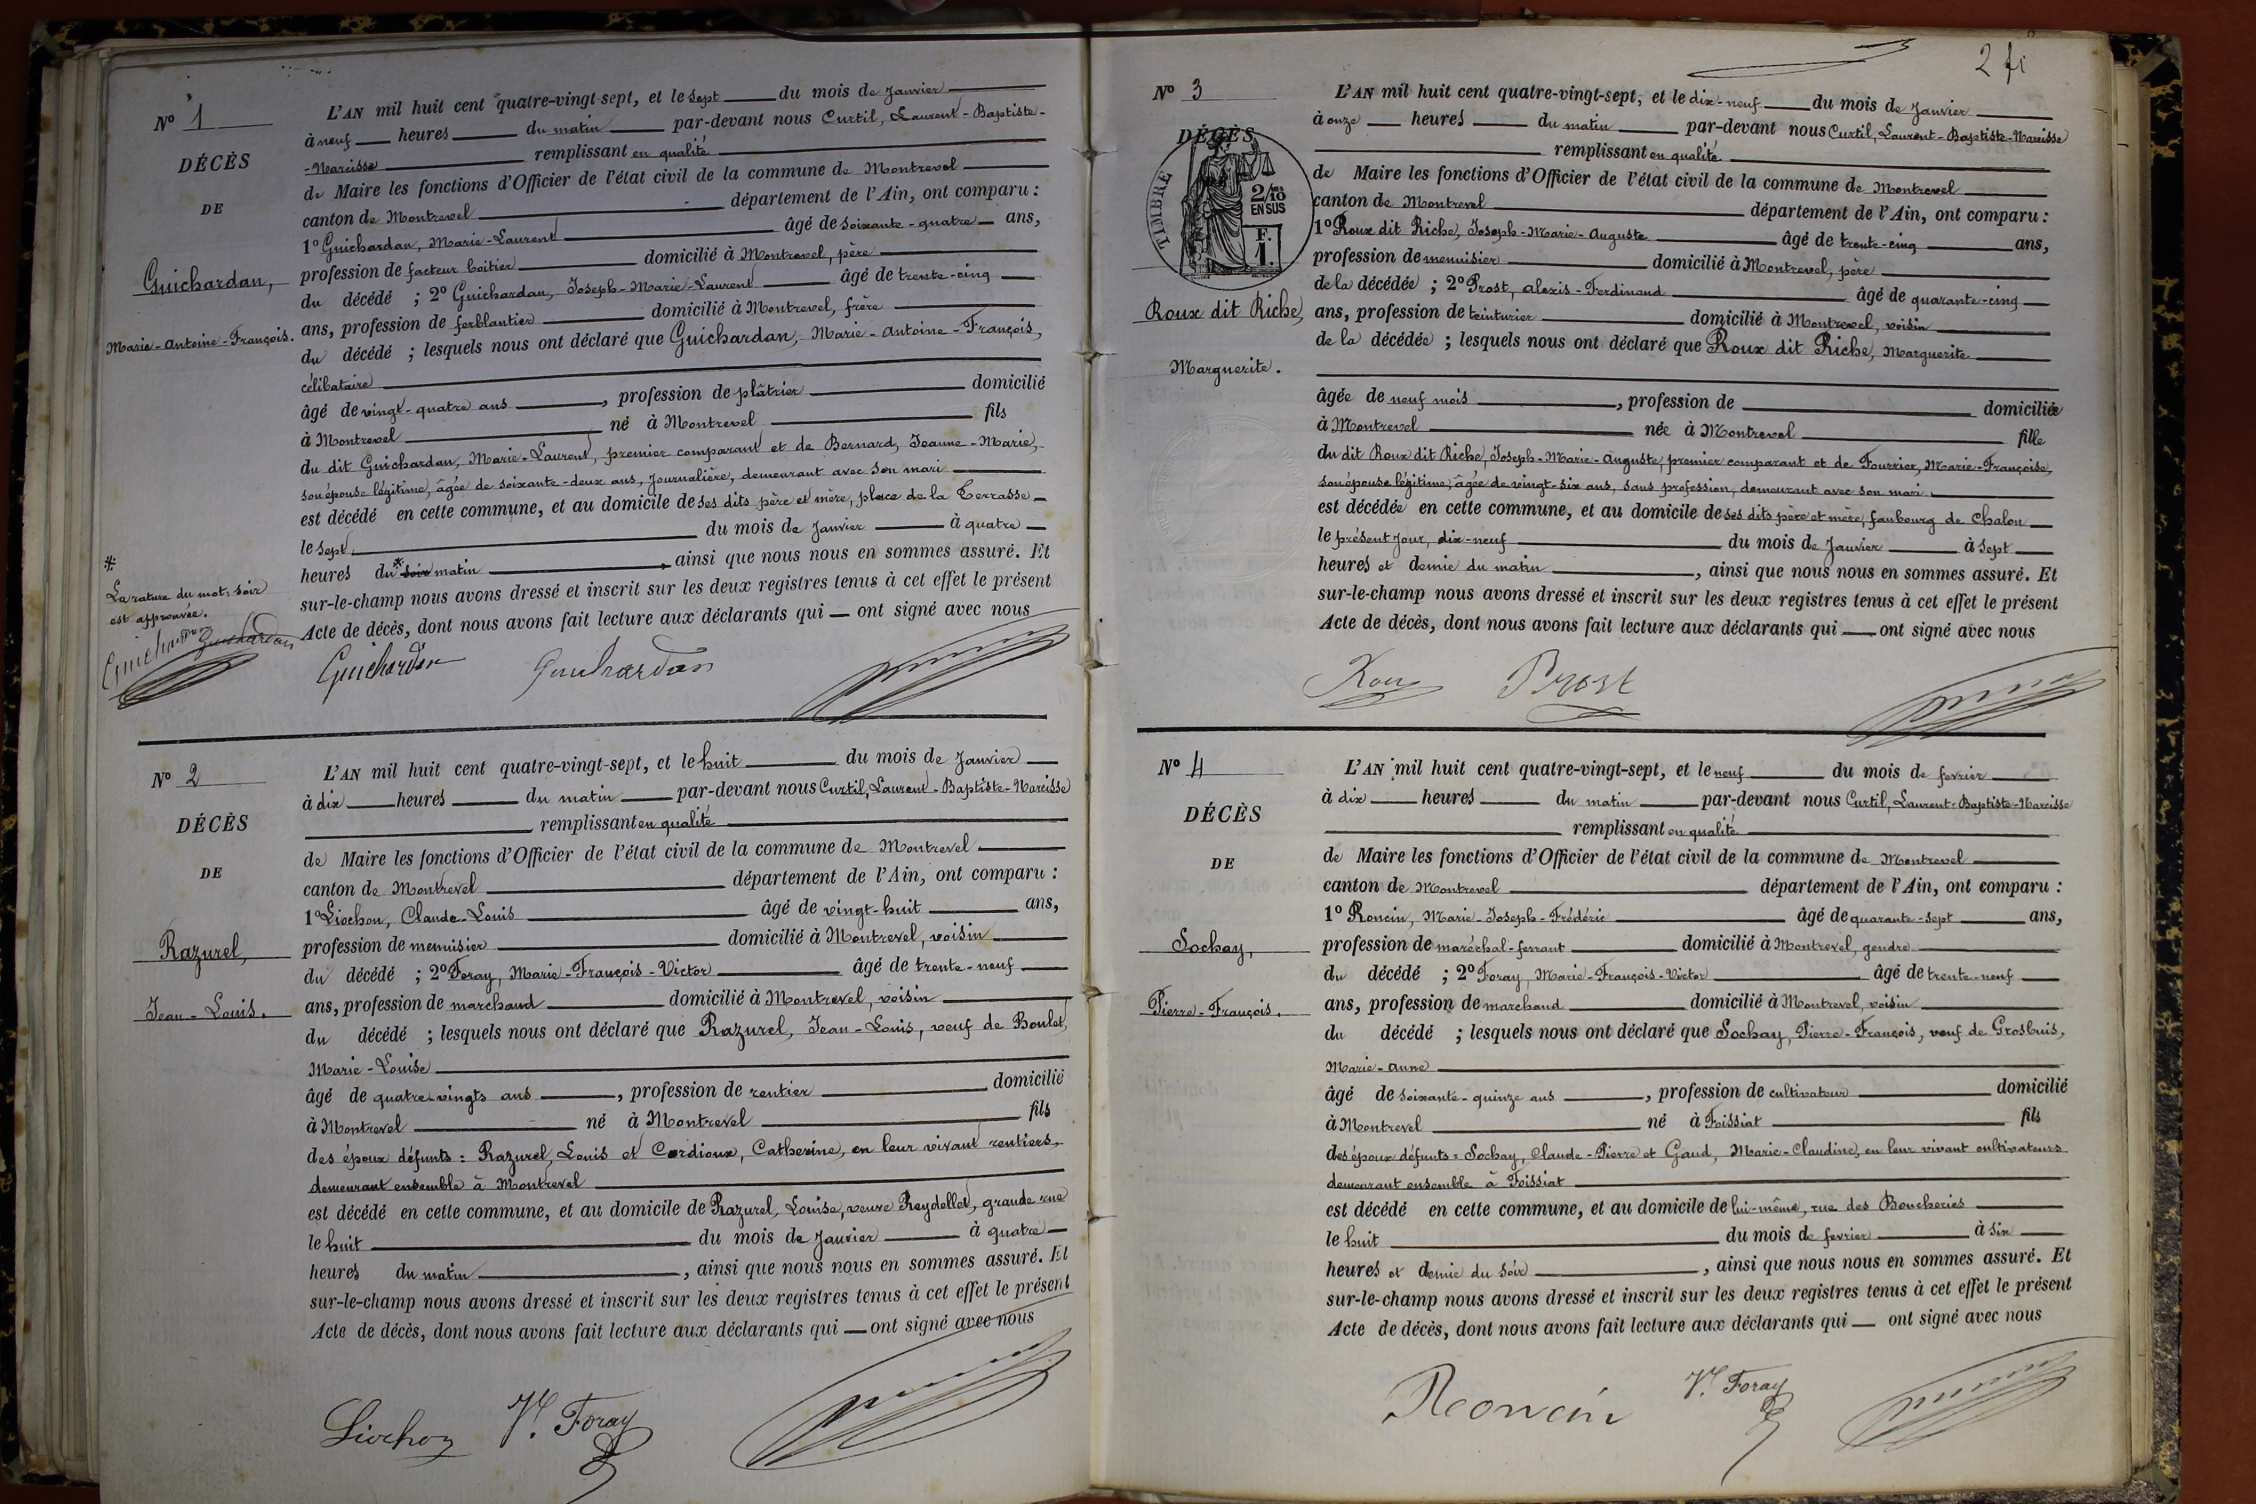 N° 1
DÉCÈS
DE
Guichardan,
Marie-Antoine-François.
L'AN mil huit cent quatre-vingt-sept, et le sept du mois de Janvier
à neuf heures du matin par-devant nous Curtil, Laurent-Baptiste-
-Narcisse remplissant en qualité
de Maire les fonctions d'Officier de l'état civil de la commune de Montrevel
canton de Montrevel département de l'Ain, ont comparu :
1° Guichardan, Marie-Laurent âgé de soixante-quatre ans,
profession de facteur boitier domicilié à Montrevel, père
du décédé ; 2° Guichardan, Joseph-Marie-Laurent âgé de trente-cinq
ans, profession de ferblantier domicilié à Montrevel, frère
du décédé ; lesquels nous ont déclaré que Guichardan, Marie-Antoine-François,
célibataire
âgé de vingt-quatre ans, profession de plâtrier domicilié
à Montrevel né à Montrevel fils
du dit Guichardan, Marie-Laurent, premier comparant et de Bernard, Jeanne-Marie,
son épouse légitime, âgée de soixante-deux ans, Journalière, demeurant avec son mari
est décédé en cette commune, et au domicile de ses dits père et mère, place de la Terrasse
le sept du mois de Janvier à quatre
heures du * soir matin, ainsi que nous nous en sommes assuré. Et
sur-le-champ nous avons dressé et inscrit sur les deux registres tenus à cet effet le présent
Acte de décès, dont nous avons fait lecture aux déclarants qui ont signé avec nous
*
La rature du mot: soir
est approuvée.
Guichardan Guichardan
Guichardan Guichardan
N° 2
DÉCÈS
DE
Razurel,
Jean-Louis.
L'AN mil huit cent quatre-vingt-sept, et le huit du mois de Janvier
à dix heures du matin par-devant nous Curtil, Laurent-Baptiste-Narcisse
remplissant en qualité
de Maire les fonctions d'Officier de l'état civil de la commune de Montrevel
canton de Montrevel département de l'Ain, ont comparu :
1° Liochon, Claude-Louis âgé de vingt-huit ans,
profession de menuisier domicilié à Montrevel, voisin
du décédé ; 2° Foray, Marie-François-Victor âgé de trente-neuf
ans, profession de marchand domicilié à Montrevel, voisin
du décédé ; lesquels nous ont déclaré que Razurel, Jean-Louis, veuf de Boulet,
Marie-Louise
âgé de quatre-vingts ans, profession de rentier domicilié
à Montrevel né à Montrevel fils
des époux défunts : Razurel, Louis et Cordioux, Catherine, en leur vivant rentiers,
demeurant ensemble à Montrevel
est décédé en cette commune, et au domicile de Razurel, Louise, veuve Reydellet, grande rue
le huit du mois de Janvier à quatre
heures du matin, ainsi que nous nous en sommes assuré. Et
sur-le-champ nous avons dressé et inscrit sur les deux registres tenus à cet effet le présent
Acte de décès, dont nous avons fait lecture aux déclarants qui ont signé avec nous
Liochon Vr. Foray
2 fi
N° 3
DÉCÈS
TIMBRE
2/10
EN SUS
F.
1.
Roux dit Riche,
Marguerite.
L'AN mil huit cent quatre-vingt-sept, et le dix-neuf du mois de Janvier
à onze heures du matin par-devant nous Curtil, Laurent-Baptiste-Narcisse
remplissant en qualité
de Maire les fonctions d'Officier de l'état civil de la commune de Montrevel
canton de Montrevel département de l'Ain, ont comparu :
1° Roux dit Riche, Joseph-Marie-Auguste âgé de trente-cinq ans,
profession de menuisier domicilié à Montrevel, père
de la décédée ; 2° Prost, Alexis-Ferdinand âgé de quarante-cinq
ans, profession de teinturier domicilié à Montrevel, voisin
de la décédée ; lesquels nous ont déclaré que Roux dit Riche, Marguerite
âgée de neuf mois, profession de domiciliée
à Montrevel née à Montrevel fille
du dit Roux dit Riche, Joseph-Marie-Auguste, premier comparant et de Fourrier, Marie-Françoise,
son épouse légitime, âgée de vingt-six ans, sans profession, demeurant avec son mari
est décédée en cette commune, et au domicile de ses dits père et mère, faubourg de Chalon
le présent jour, dix-neuf du mois de Janvier à sept
heures et demie du matin, ainsi que nous nous en sommes assuré. Et
sur-le-champ nous avons dressé et inscrit sur les deux registres tenus à cet effet le présent
Acte de décès, dont nous avons fait lecture aux déclarants qui ont signé avec nous
Roux Prost
N° 4
DÉCÈS
DE
Sochay,
Pierre-François.
L'AN mil huit cent quatre-vingt-sept, et le neuf du mois de fevrier
à dix heures du matin par-devant nous Curtil, Laurent-Baptiste-Narcisse
remplissant en qualité
de Maire les fonctions d'Officier de l'état civil de la commune de Montrevel
canton de Montrevel département de l'Ain, ont comparu :
1° Roncin, Marie-Joseph-Frédéric âgé de quarante-sept ans,
profession de maréchal-ferrant domicilié à Montrevel, gendre
du décédé ; 2° Foray, Marie-François-Victor âgé de trente-neuf
ans, profession de marchand domicilié à Montrevel, voisin
du décédé ; lesquels nous ont déclaré que Sochay, Pierre-François, veuf de Grosbuis,
Marie-Anne
âgé de soixante-quinze ans, profession de cultivateur domicilié
à Montrevel né à Foissiat fils
des époux défunts : Sochay, Claude-Pierre et Gaud, Marie-Claudine, en leur vivant cultivateurs
demeurant ensemble à Foissiat
est décédé en cette commune, et au domicile de lui-même, rue des Boucheries
le huit du mois de fevrier à six
heures et demie du soir, ainsi que nous nous en sommes assuré. Et
sur-le-champ nous avons dressé et inscrit sur les deux registres tenus à cet effet le présent
Acte de décès, dont nous avons fait lecture aux déclarants qui ont signé avec nous
Roncin Vr. Foray